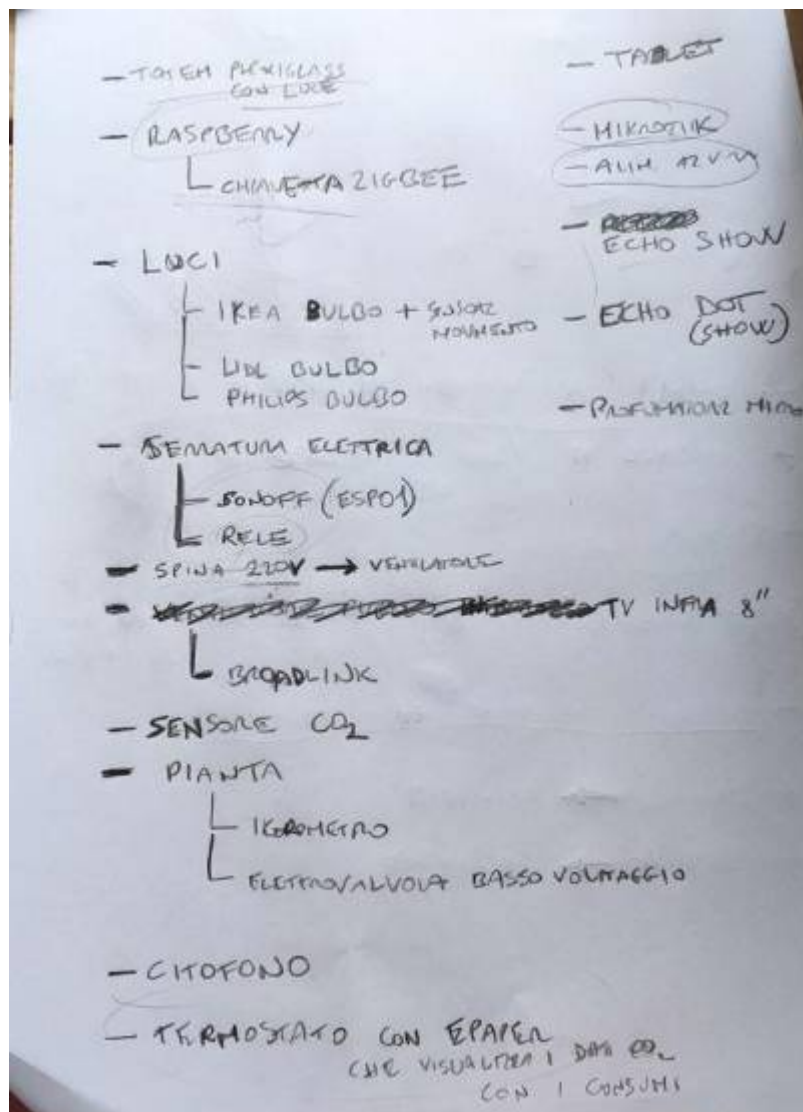 - TOTEM PLEXIGLASS
CON LUCE
- RASPBERRY
CHIAVETTA ZIGBEE
- LUCI
IKEA BULBO + SENSORE
MOVIMENTO
- LIDL BULBO
PHILIPS BULBO
- SERRATURA ELETTRICA
SONOFF (ESP01)
RELE
- SPINA 220V → VENTILATORE
- TV INFRA 8"
BROADLINK
- SENSORE CO2
- PIANTA
IGROMETRO
ELETTROVALVOLA BASSO VOLTAGGIO
- CITOFONO
- TERMOSTATO CON EPAPER
CHE VISUALIZZA I DATI CO2
CON I CONSUMI
- TABLET
- MIKROTIK
- ALIM 12V
- ECHO SHOW
- ECHO DOT
(SHOW)